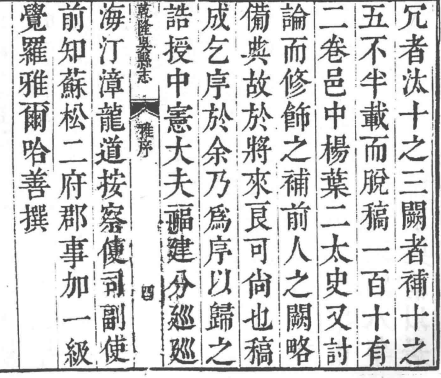 冗者汰十之三闕者補十之
五不半載而脫稿一百十有
二卷邑中楊葉二太史又討
論而修飾之補前人之闕略
備典故於將來良可尙也稿
成乞序於余乃爲序以歸之
誥授中憲大夫福建分廵廵
乾隆吳縣志
雅序
四
海汀漳龍道按察使司副使
前知蘇松二府郡事加一級
覺羅雅爾哈善撰